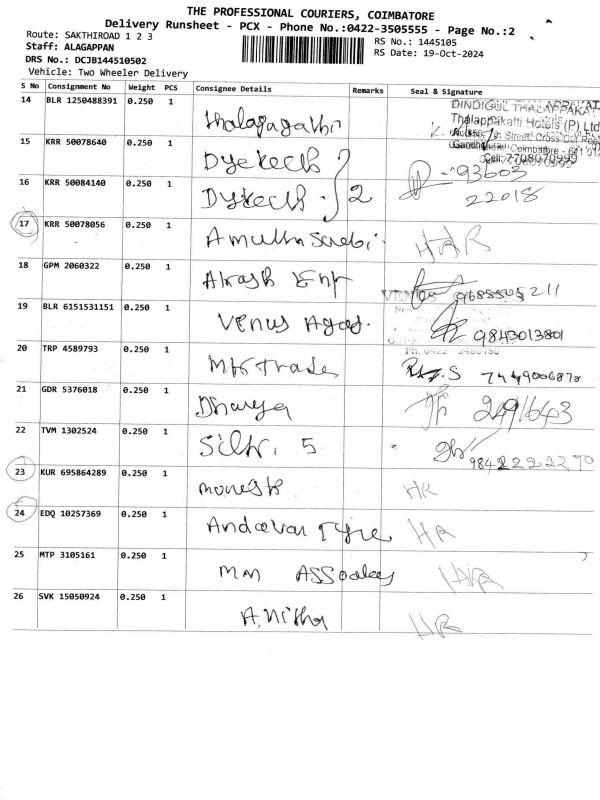 THE PROFESSIONAL COURIERS, COIMBATORE
Delivery Runsheet - PCX - Phone No.:0422-3505555 - Page No.:2
Route: SAKTHIROAD 1 2 3
RS No.: 1445105
Staff: ALAGAPPAN
RS Date: 19-Oct-2024
DRS No.: DCJB144510502
Vehicle: Two Wheeler Delivery
S No Consignment No Weight PCS Consignee Details Remarks Seal & Signature
14 BLR 1250488391 0.250 1
DINDIGUL THALAPPAKATTI
Thalappakatti Hotels (P) Ltd
Street, Cross Cut Road
Coimbatore - 641 012
Cell: 7708070999
15 KRR 50078640 0.250 1 Dytech
93603
16 KRR 50084140 0.250 1 Dytech 2
22018
17 KRR 50078056 0.250 1
18 GPM 2060322 0.250 1 Akash Ent
VENUS 9688505211
19 BLR 6151531151 0.250 1 Venus Agas.
9843013801
Ph: 0422
20 TRP 4589793 0.250 1 MK Trades
21 GDR 5376018 0.250 1 Dhavya
22 TVM 1302524 0.250 1 5
23 KUR 695864289 0.250 1 HR
24 EDQ 10257369 0.250 1 Andavar Tyre HR
25 MTP 3105161 0.250 1 MM
26 SVK 15050924 0.250 1 A.Nitha HR